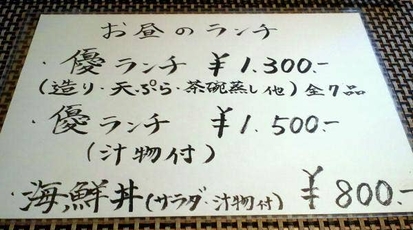 お昼のランチ
・優ランチ ¥1.300.-
(造り・天ぷら・茶碗蒸し他)全7品
・優ランチ ¥1.500.-
(汁物付)
・海鮮丼(サラダ・汁物付) ¥800.-